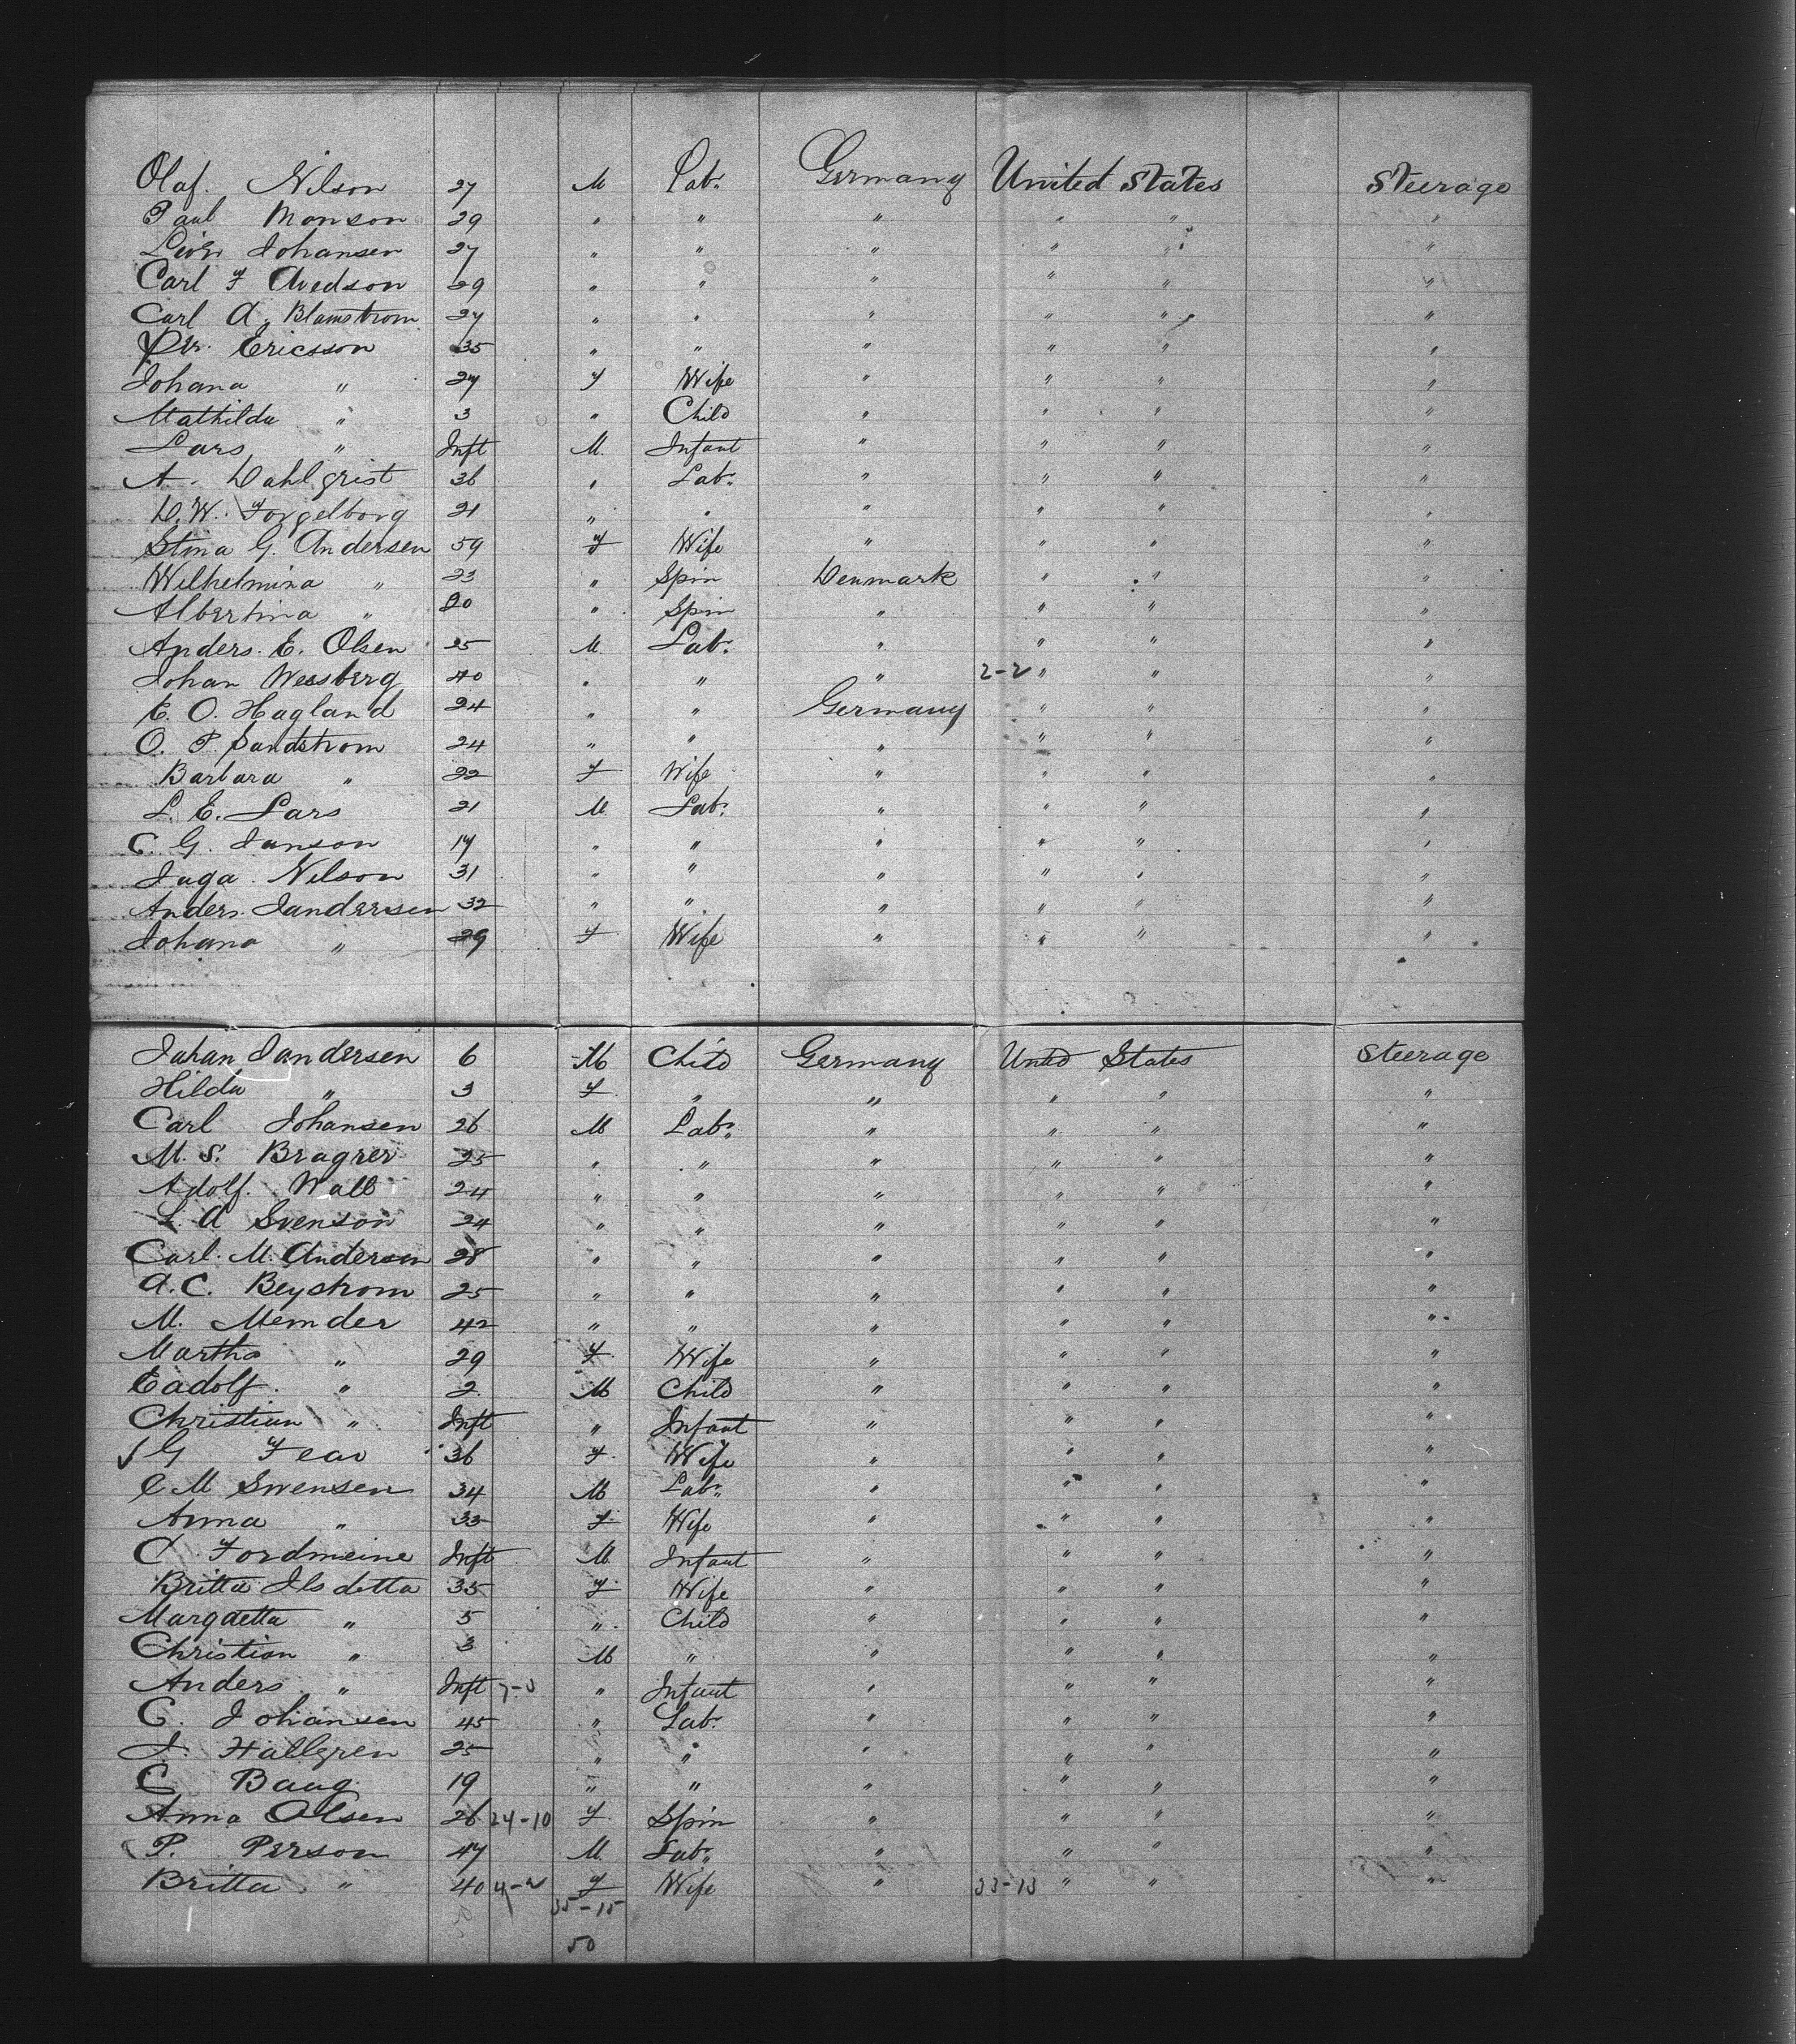 Olaf. Nilson 27 M Lab. Germany United States Steerage
Paul Monson 29 " " " " " "
Johansen 27 " " " " " "
Carl F Avedson 29 " " " " " "
Carl A. Blamstrom 27 " " " " " "
Per. Ericsson 35 " " " " " "
Johana " 27 F Wife " " " "
Mathilda " 3 " Child " " " "
Lars " Inft M. Infant " " " "
A. Dahlgrist 36 " Lab. " " " "
D. W. Forgelborg 21 " " " " " "
Stina G. Andersen 59 F Wife " " " "
Wilhelmina " 23 " Spin Denmark " " "
Albertina " 20 " Spin " " " "
Anders. E. Olsen 25 M Lab. " " " "
Johan Wessberg 40 " " " 2-2 " " "
E. O. Hagland 24 " " Germany " " "
O. P. Sandstrom 24 " " " " " "
Barbara " 22 F Wife " " " "
L. E. Lars 21 M Lab. " " " "
C. G. Janson 17 " " " " " "
Juga Nilson 31 " " " " " "
Anders. Jandersen 32 " " " " " "
Johana " 29 F Wife " " " "
Johan Jandersen 6 M Child Germany United States Steerage
Hilda " 3 F. " " " " "
Carl Johansen 26 M Lab. " " " "
M. S. Bragrer 25 " " " " " "
Adolf. Wall 24 " " " " " "
L. A Svenson 24 " " " " " "
Carl. M. Anderson 28 " " " " " "
A. C. Beystrom 25 " " " " " "
M. Memder 42 " " " " " "
Martha " 29 F. Wife " " " "
Eadolf. " 2 M Child " " " "
Christian " Inft " Infant " " " "
G Fear 36 F. Wife " " " "
C M Swensen 34 M Lab. " " " "
Anna " 33 F. Wife " " " "
C Fordmeine Inft M. Infant " " " "
Britta Ilsdetta 35 F. Wife " " " "
Margaetta " 5 " Child " " " "
Christian " 3 M " " " " "
Anders " Inft " Infant " " " "
C. Johansen 45 " Lab. " " " "
J. Hallgren 25 " " " " " "
C Baug. 19 " " " " " "
Anna Olsen 26 24-10 F. Spin " " " "
P. Person 47 M. Lab. " " " "
Britta " 40 4-2 F Wife " 33-13 " " "
35-15
50